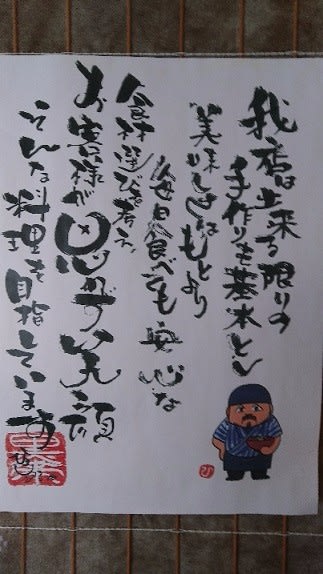 我が店は出来る限りの
手作りを基本とし
美味しさはもとより
毎日食べても安心な
食材選びを考え
お客様が思わず笑顔に
そんな料理を目指しています